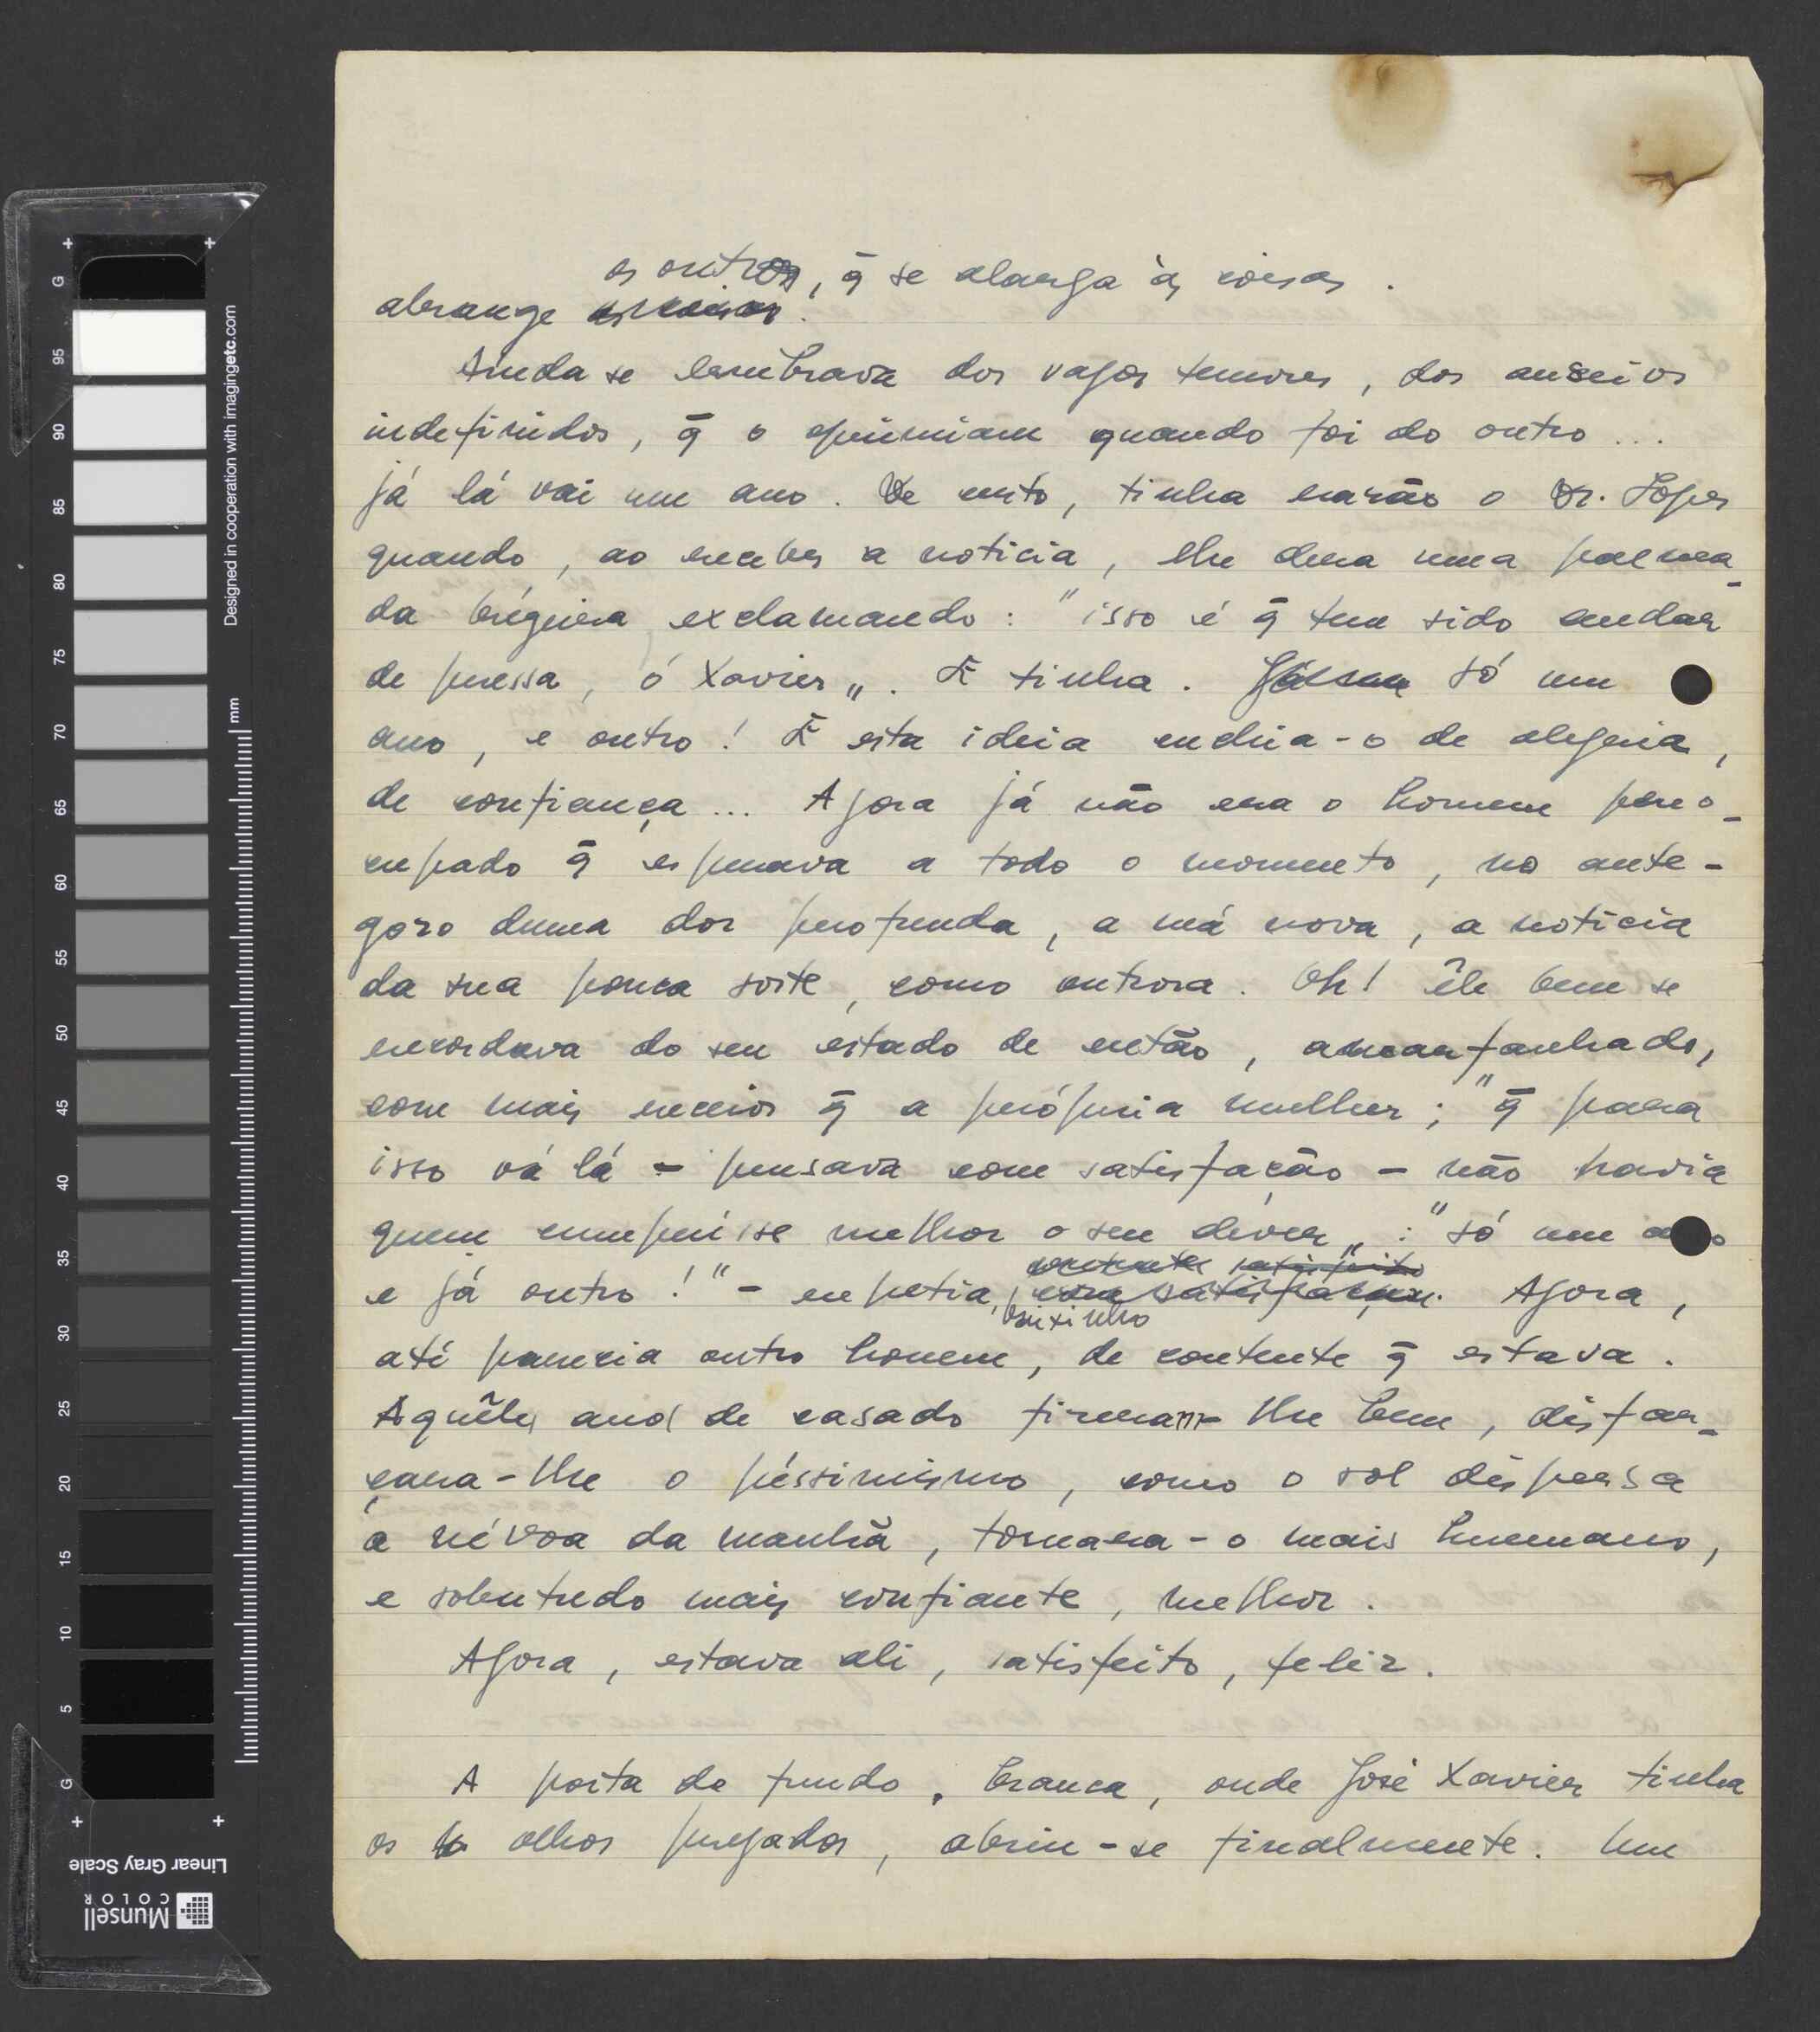 os outros, q̄ se alarga às coisas.
abrange as coisas.
Ainda se lembrava dos vagos temores, dos anseios
indefinidos, q̄ o opri­miam quando foi do outro...
já lá vai um ano. De certo, tinha razão o Dr. Lopes
quando, ao receber a noticia, lhe dera uma palma-
da brégeira exclamando: "isso é q̄ tem sido andar
de pressa, ó Xavier„. E tinha. só um
ano, e outro! E esta ideia enchia-o de alegria,
de confiança... Agora já não era o homem preo-
cupado q̄ esperava a todo o momento, no ante-
gozo duma dor profunda, a má nova, a noticia
da sua pouca sorte, como outrora. Oh! êle bem se
recordava do seu estado de então, amarfanhado,
com mais receios q̄ a própria mulher; "q̄ para
isso vá lá - pensava com satisfação - não havia
quem cumprisse melhor o seu dever„: "só um ano
contente satisfeito
e já outro!" - repetia, com satisfação. Agora,
baixinho
até parecia outro homem, de contente q̄ estava.
Aquêles anos de casado fizeram-lhe bem, disfar-
çara-lhe o péssimismo, como o sol dispersa
a névoa da manhã, tornara-o mais humano,
e sobretudo mais confiante, melhor.
Agora, estava ali, satisfeito, feliz.
A porta do fundo, branca, onde José Xavier tinha
os olhos pregados, abriu-se finalmente. Um
Designed in cooperation with imagingetc.com
mm
G 95 90 85 80 75 70 65 60 55 50 45 40 35 30 25 20 15 10 5 G
Linear Gray Scale
Munsell
COLOR